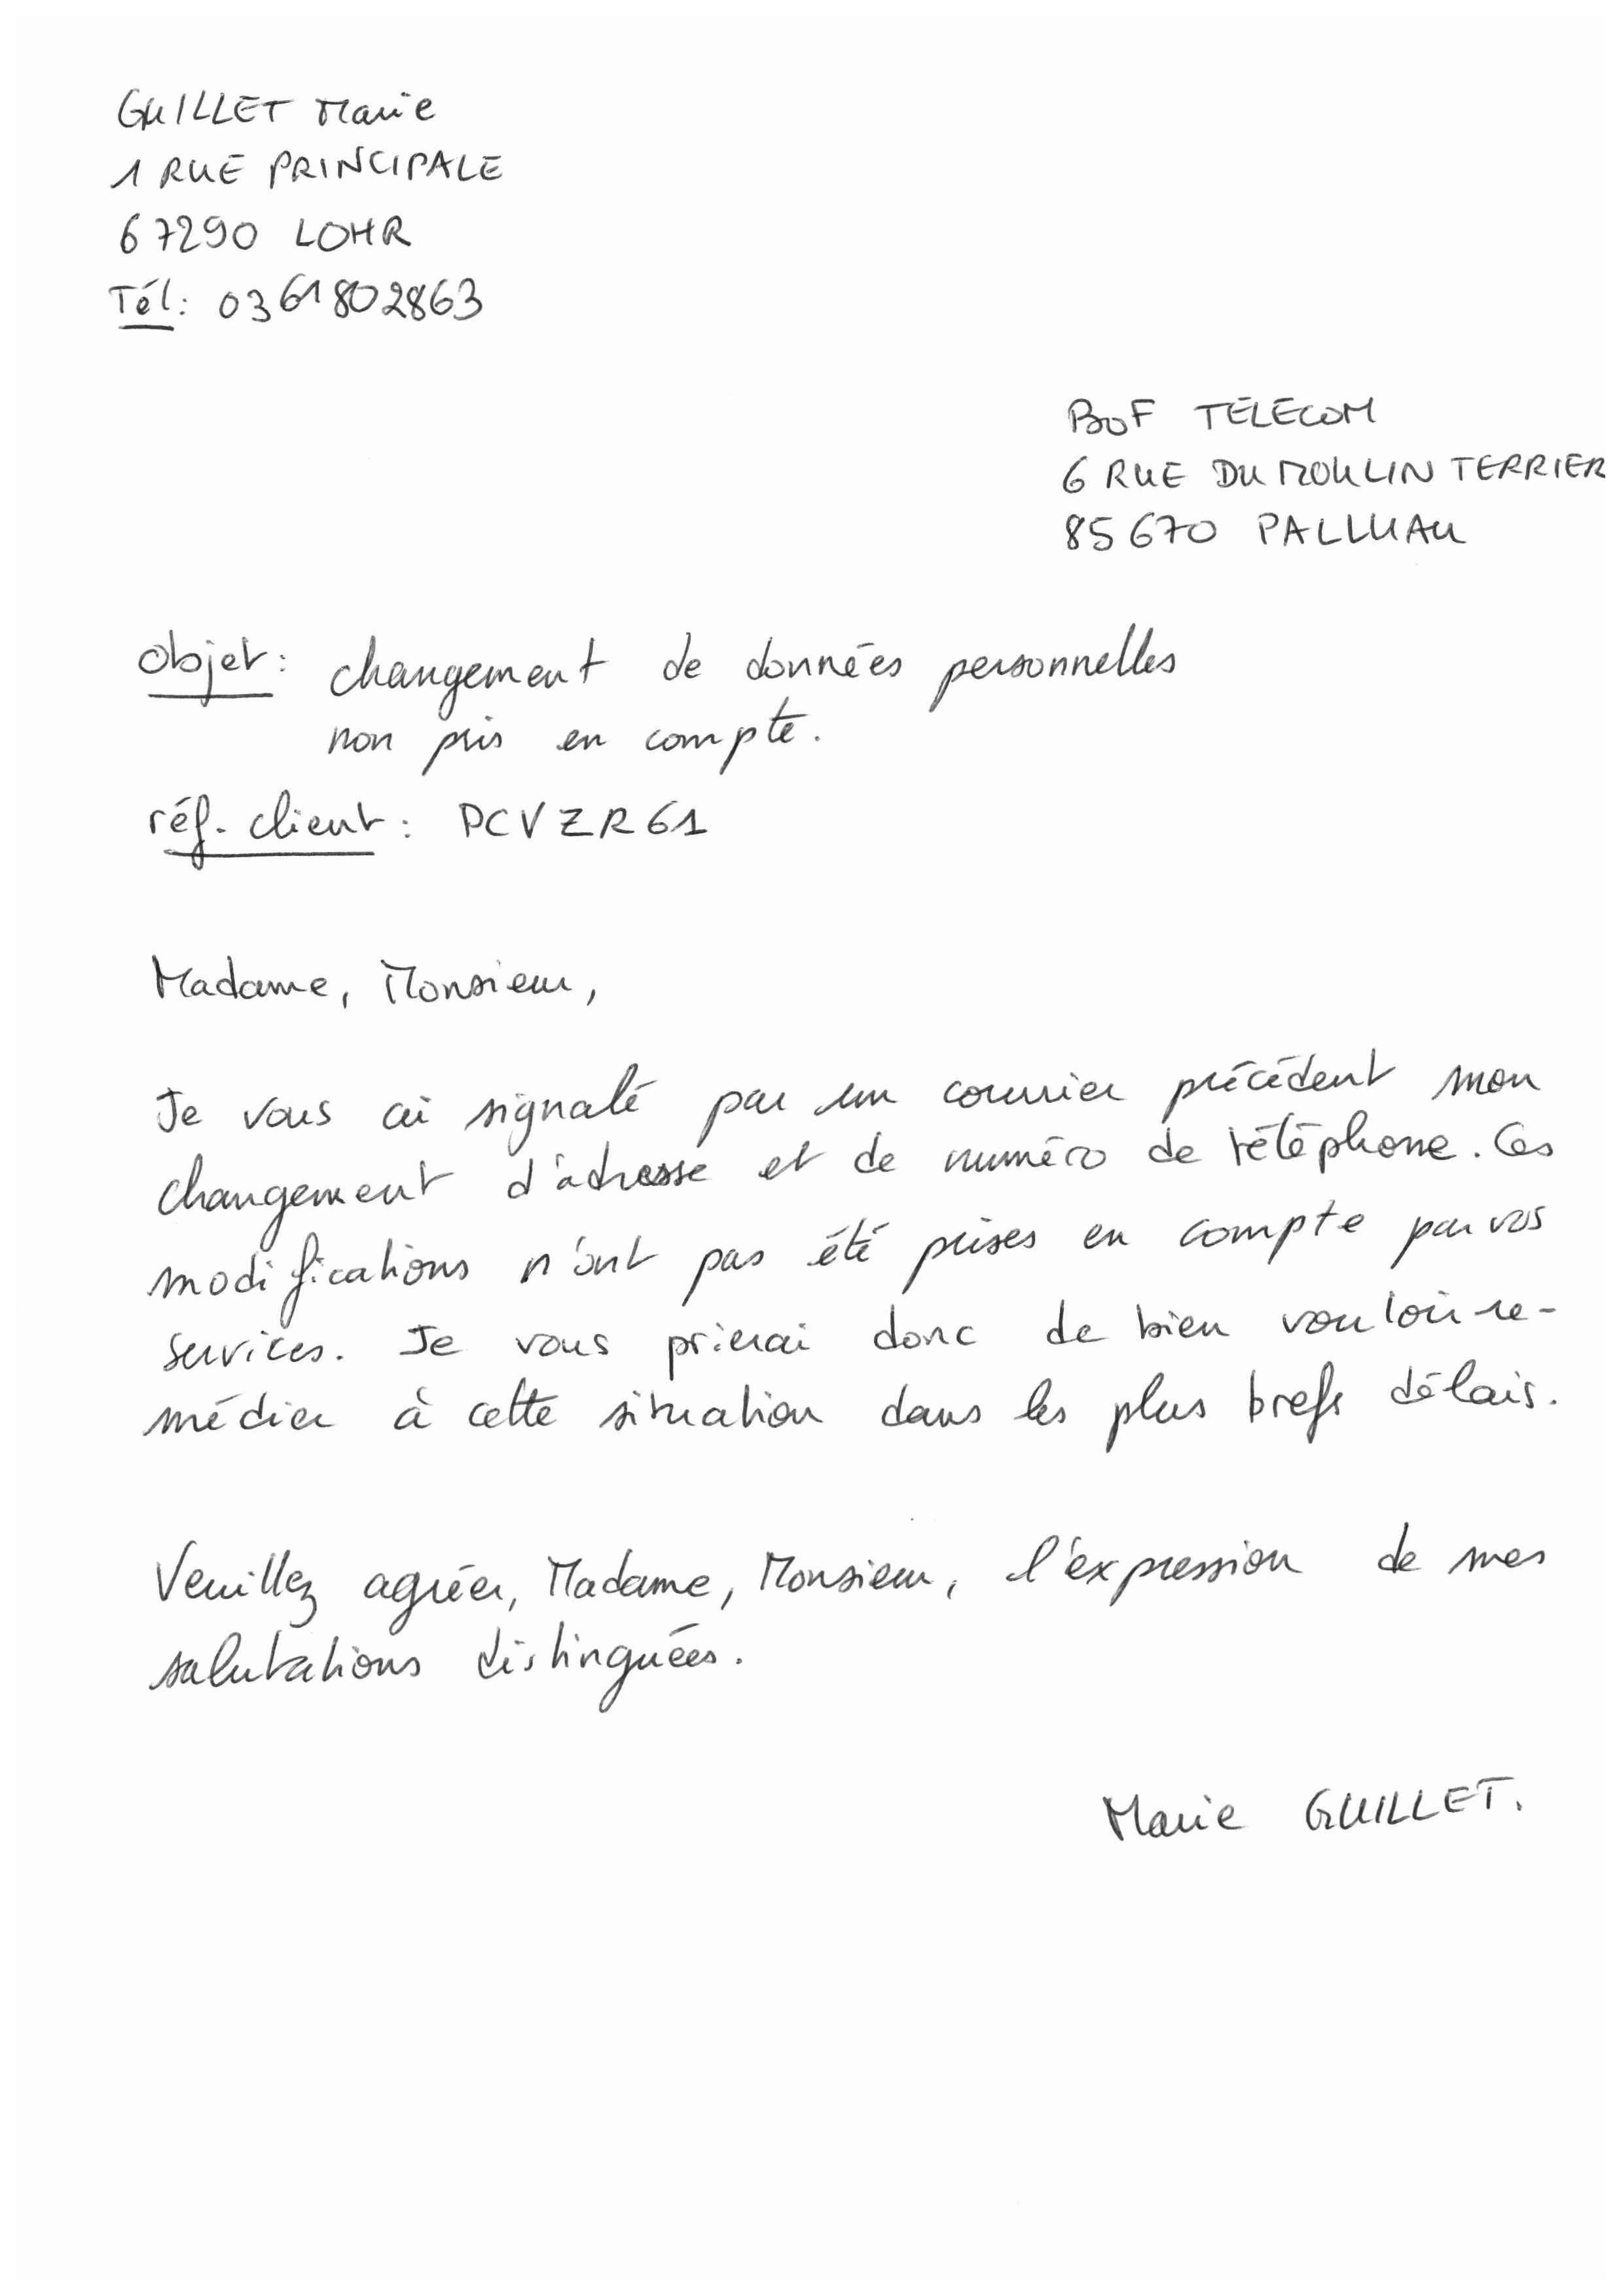 GUILLET Marie
1 RUE PRINCIPALE
67290 LOHR
Tél: 0361802863
BOF TÉLÉCOM
6 RUE DU MOULIN TERRIER
85670 PALLUAU
Objet: changement de données personnelles
non pris en compte.
réf. client: DCVZR61
Madame, Monsieur,
Je vous ai signalé par un courrier précédent mon
changement d'adresse et de numéro de téléphone. Ces
modifications n'ont pas été prises en compte par vos
services. Je vous prierai donc de bien vouloir re-
médier à cette situation dans les plus brefs délais.
Veuillez agréer, Madame, Monsieur, l'expression de mes
salutations distinguées.
Marie GUILLET.